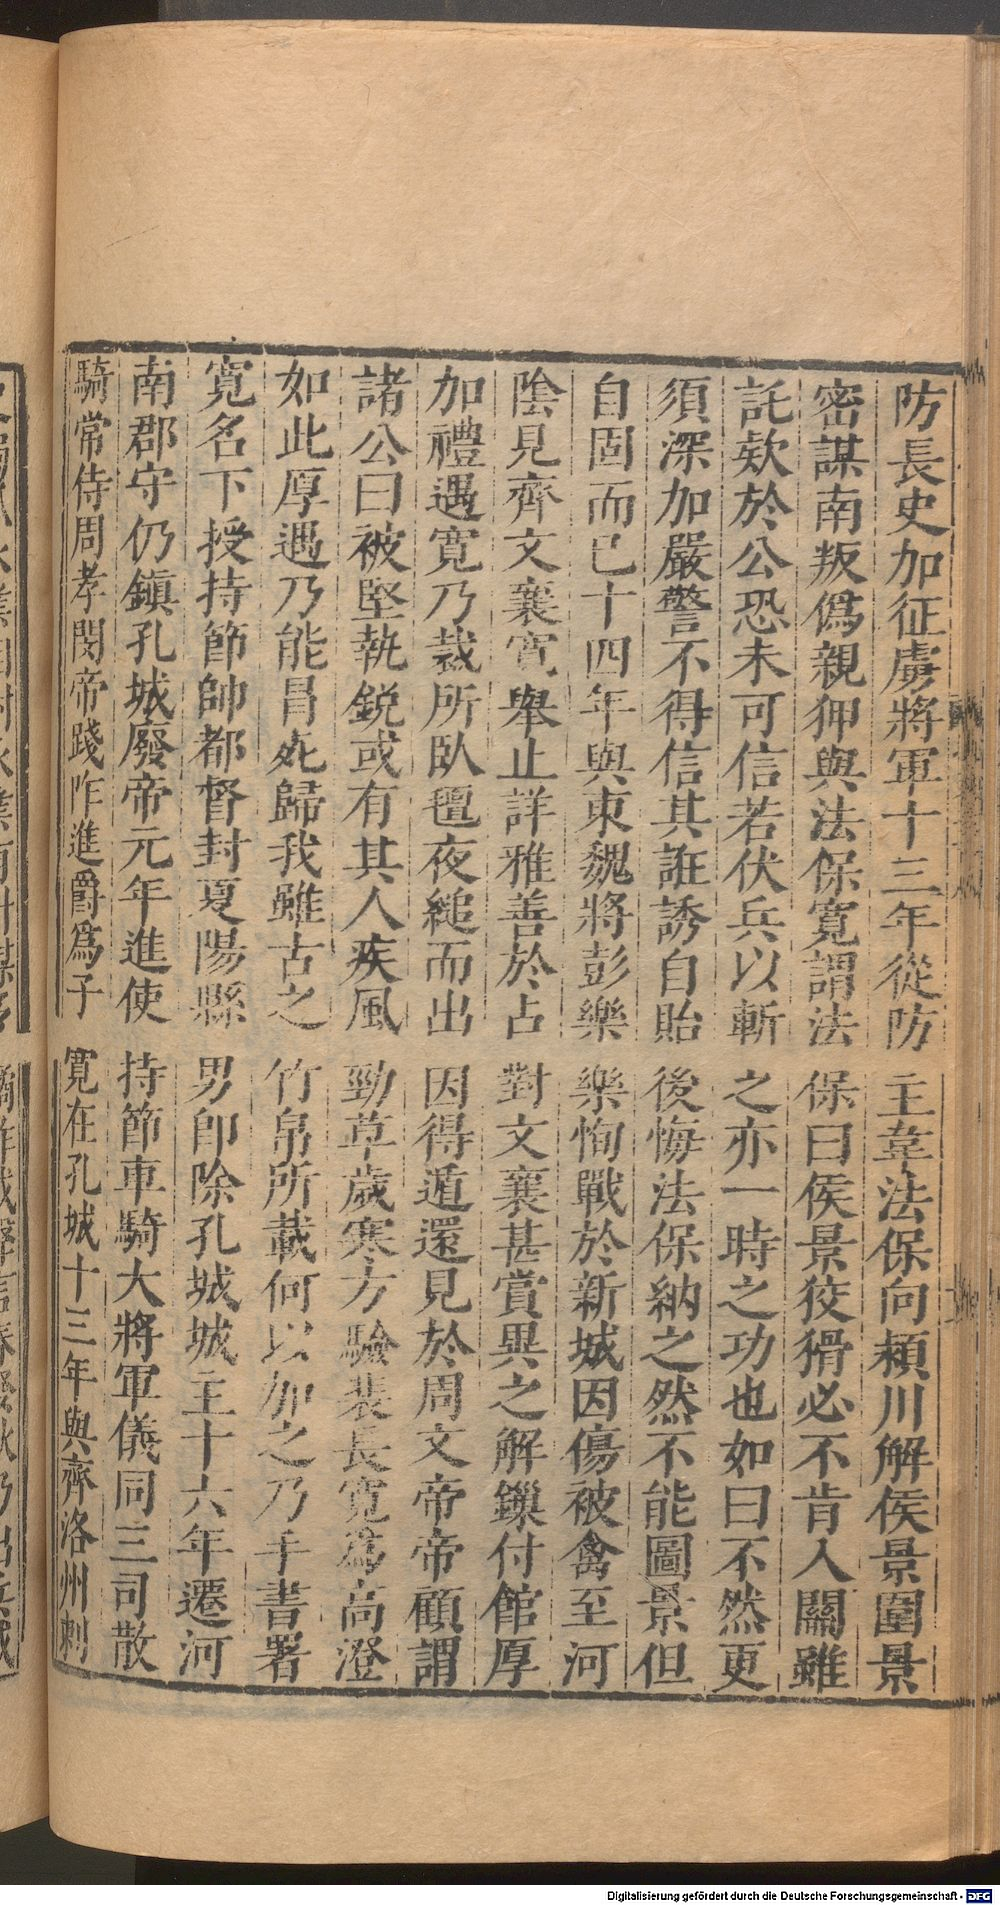 防長史加征虜將軍十三年從防主韋法保向潁川解侯景圍景
密謀南叛僞親狎與法保寬謂法保曰侯景狡猾必不肯入關雖
託欵於公恐未可信若伏兵以斬之亦一時之功也如曰不然更
須深加嚴警不得信其誑誘自貽後悔法保納之然不能圖景但
自固而已十四年與東魏將彭樂樂恂戰於新城因傷被禽至河
陰見齊文襄寬舉止詳雅善於占對文襄甚賞異之解鏁付館厚
加禮遇寬乃裁所臥氊夜縋而出因得遁還見於周文帝帝顧謂
諸公曰被堅執銳或有其人疾風勁草歲寒方驗裴長寬爲高澄
如此厚遇乃能冒死歸我雖古之竹帛所載何以加之乃手書署
寬名下授持節帥都督封夏陽縣男即除孔城城主十六年遷河
南郡守仍鎮孔城廢帝元年進使持節車騎大將軍儀同三司散
騎常侍周孝閔帝踐阼進爵爲子寬在孔城十三年與齊洛州刺
Digitalisierung gefördert durch die Deutsche Forschungsgemeinschaft - DFG